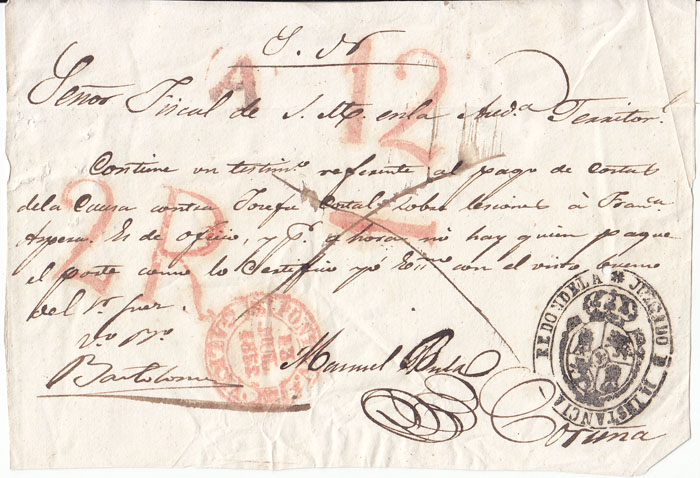 S. N.
A 12
Señor Fiscal de S. M. en la Aud.a Territor.l
Contiene un testim.o referente al pago de costas
de la Causa contra Josefa Costal sobre lesiones á Fran.ca
Es de oficio, y p.r ahora no hay quien pague
el porte como lo Certifico yo Ess.no con el visto bueno
del S.r Juez.
2 R
V.o B.o
Bartolome
Manuel
12
JUL
1852
REDONDELA * JUZGADO DE 1ª INSTANCIA
Coruña